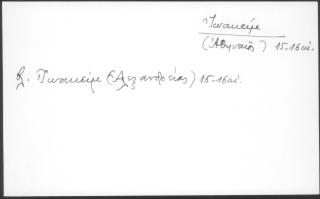 Ἰωακείμ
(Ἀθηναῖος) 15-16αἰ.
β. Ἰωακείμ (Ἀλεξανδρείας) 15-16αἰ.